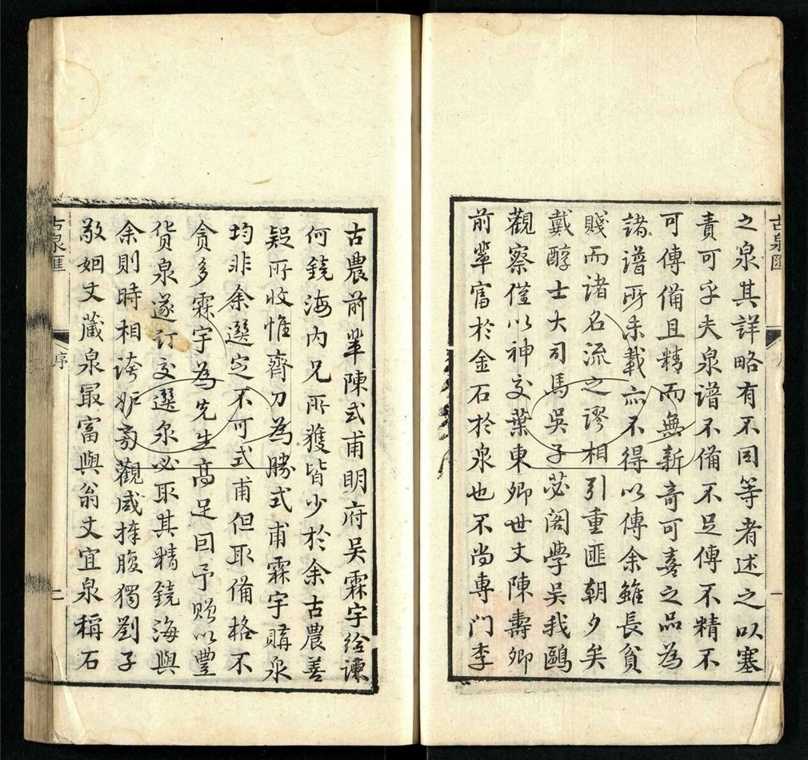 古泉匯
一
之泉其詳略有不同等者述之以塞
責可乎夫泉譜不備不足傳不精不
可傳備且精而無新奇可喜之品為
諸譜所未載亦不得以傳余雖長貧
賤而諸名流之謬相引重匪朝夕矣
戴醇士大司馬吳子苾閣學吳我鷗
觀察僅以神交葉東卿世丈陳壽卿
前輩富於金石於泉也不尚專門李
古農前輩陳式甫明府吳霖宇給諫
何鏡海內兄所獲皆少於余古農善
疑所收惟齊刀為勝式甫霖宇購泉
均非余選定不可式甫但取備格不
貪多霖宇為先生高足回予贈以豐
貨泉遂訂交選泉必取其精鏡海與
余則時相誇妒旁觀咸捧腹獨劉子
敬姻丈藏泉最富與翁丈宜泉稱石
古泉匯
序
二